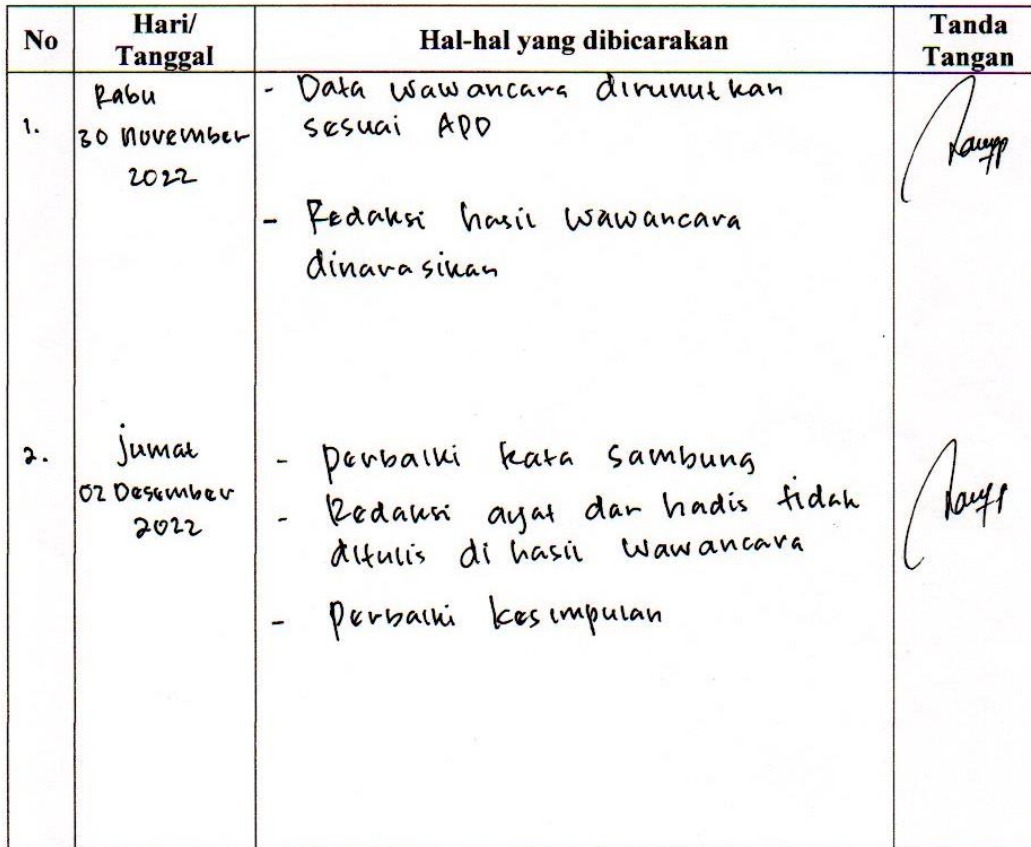 No
Hari/
Tanggal
Hal-hal yang dibicarakan
Tanda
Tangan
1.
Rabu
30 November
2022
- Data wawancara dirunutkan
sesuai APD
- Redaksi hasil wawancara
dinarasikan
2.
Jumat
02 Desember
2022
- Perbaiki kata sambung
- Redaksi ayat dan hadis tidak
ditulis di hasil wawancara
- Perbaiki kesimpulan